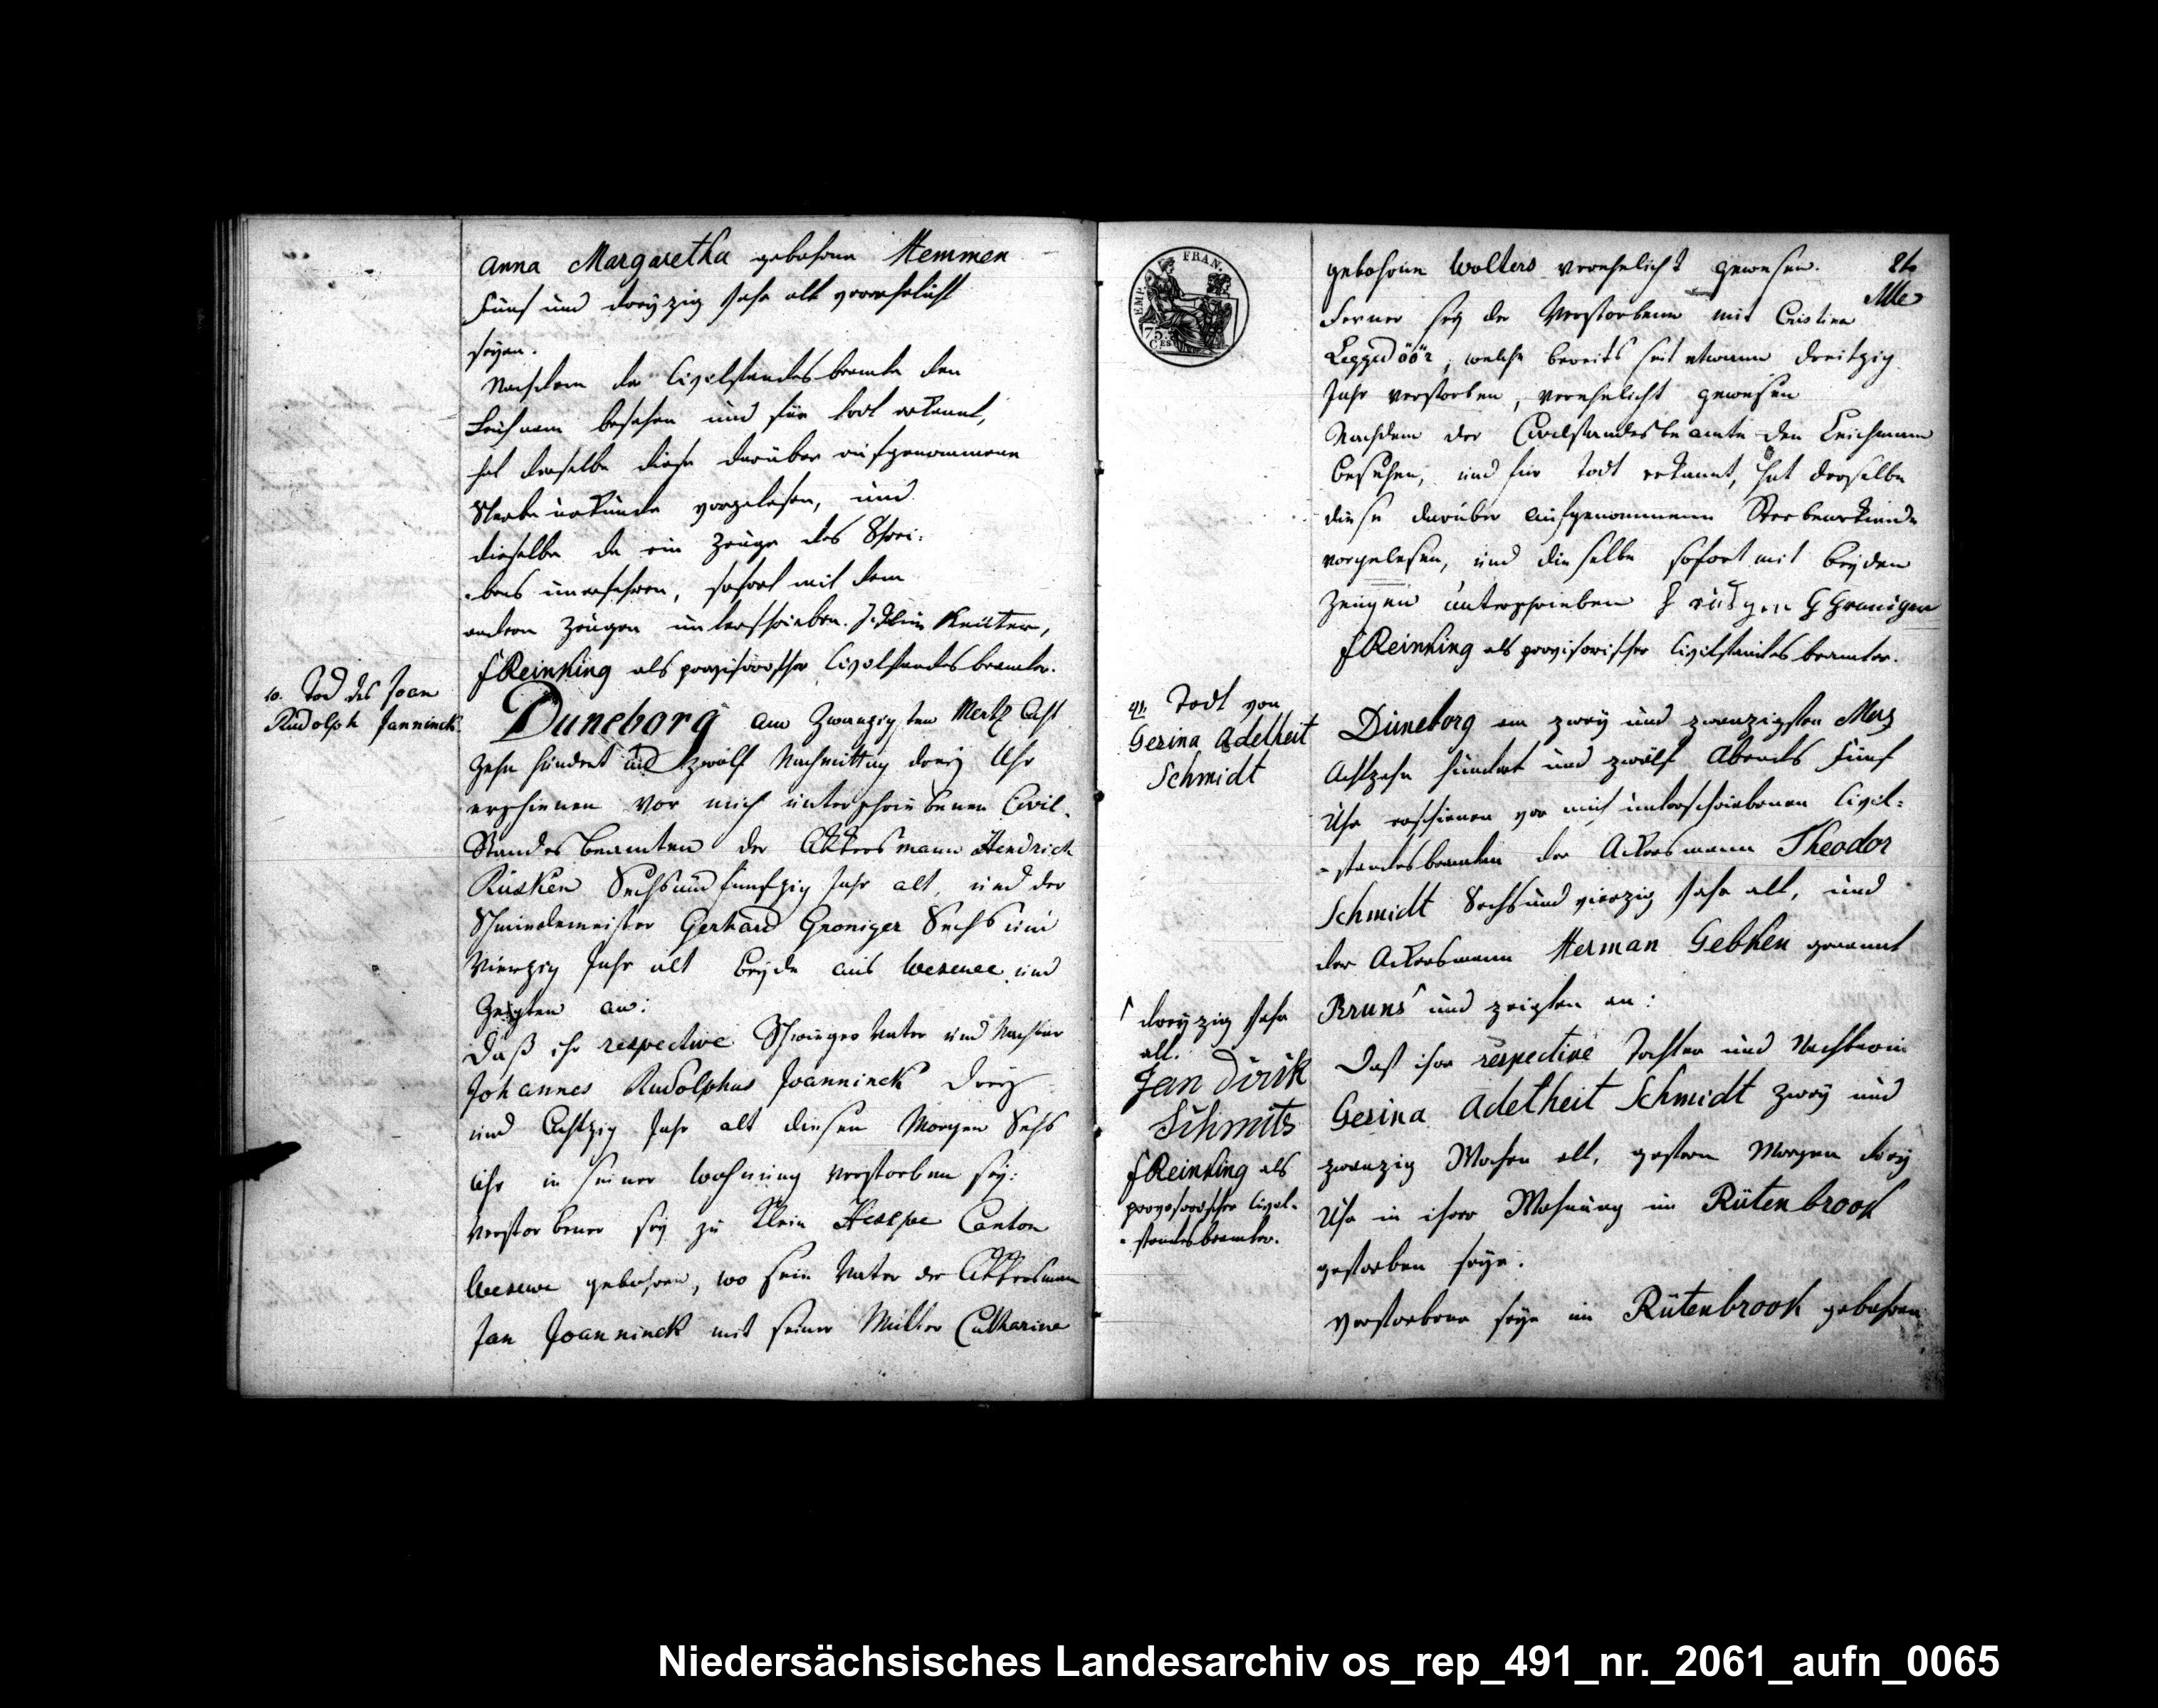 Anna Margaretha gebohrne Hemmen
Fünf und dreÿzig Jahr alt verehelicht
seyen.
Nachdem der Civilstandesbeamte den
Leichnam besehen und für todt erkannt,
hat derselbe diese darüber aufgenommene
Sterbeurkunde vorgelesen, und
dieselbe da ein Zeuge des Schrei-
-bens unerfahren, sofort mit dem
andern Zeugen unterschrieben. Keuter,
F Reinking als provisorischer Civilstandesbeamter.
10. Tod des Joan
Rudolph Janninck.
Duneborg am Zwanzigsten Mertz Acht
zehn hundert und zwölf Nachmittag dreÿ Uhr
erschienen vor mich unterschriebenen Civil-
Standes beamten der Akkersmann Hendrick
Rüsken Sechs und fünfzig Jahr alt, und der
Schmiedemeister Gerhard Groniger Sechs und
Vierzig Jahr alt beÿde aus Wesuwe und
Zeigten an:
Daß ihr respective Schwieger Vater und Nachbar
Johannes Rudolphus Joanninck dreÿ
und Achtzig Jahr alt diesen Morgen Sechs
Uhr in seiner Wohnung verstorben seÿ:
Verstorbener seÿ zu Klein Hesepe Canton
Wesuwe gebohren, wo sein Vater der Akkersman
Jan Joanninck mit seiner Mutter Catharina
EMP. FRAN.
75.
CES
gebohrne Wolters verehelicht gewesen.
Ferner seÿ der Verstorbene mit Cristina
Leggedöör, welche bereits seit etwann dreitzig
Jahr verstorben, verehelicht gewesen
Nachdem der Civilstandesbeamte den Leichnam
besehen, und für todt erkannt, hat derselbe
diese darüber aufgenommene Sterbeurkunde
vorgelesen, und dieselbe sofort mit beÿden
Zeugen unterschrieben H rüsgen G Gronigen
F Reinking als provisorischer Civilstandesbeamter.
Todt von
Gesina Adelheit
Schmidt
Düneborg am zweÿ und zwanzigsten Merz
Achtzehn hundert und zwölf Abends Fünf
Uhr erschienen vor mich unterschriebenen Civil-
-standesbeamten der Ackersmann Theodor
Schmidt Sechs und vierzig Jahr alt, und
der Ackersmann Herman Gebken genannt
Bruns und zeigten an:
dreÿzig Jahr
alt.
Jan Dirk
Schmits
F Reinking als
provisorischer Civil-
-standesbeamter.
Daß ihre respective Tochter und Nachbarin
Gesina Adelheit Schmidt zweÿ und
zwanzig Wochen alt, gestern Morgen dreÿ
Uhr in ihrer Wohnung im Rütenbrook
gestorben seye.
Verstorbene seye im Rütenbrook gebohren
Niedersächsisches Landesarchiv os_rep_491_nr._2061_aufn_0065